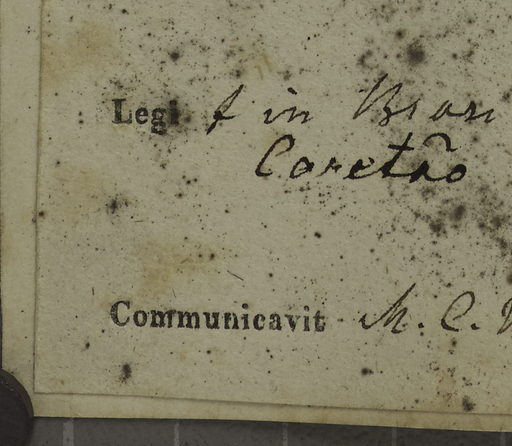 Legi f in Brasi
Caretão
Communicavit M. C.